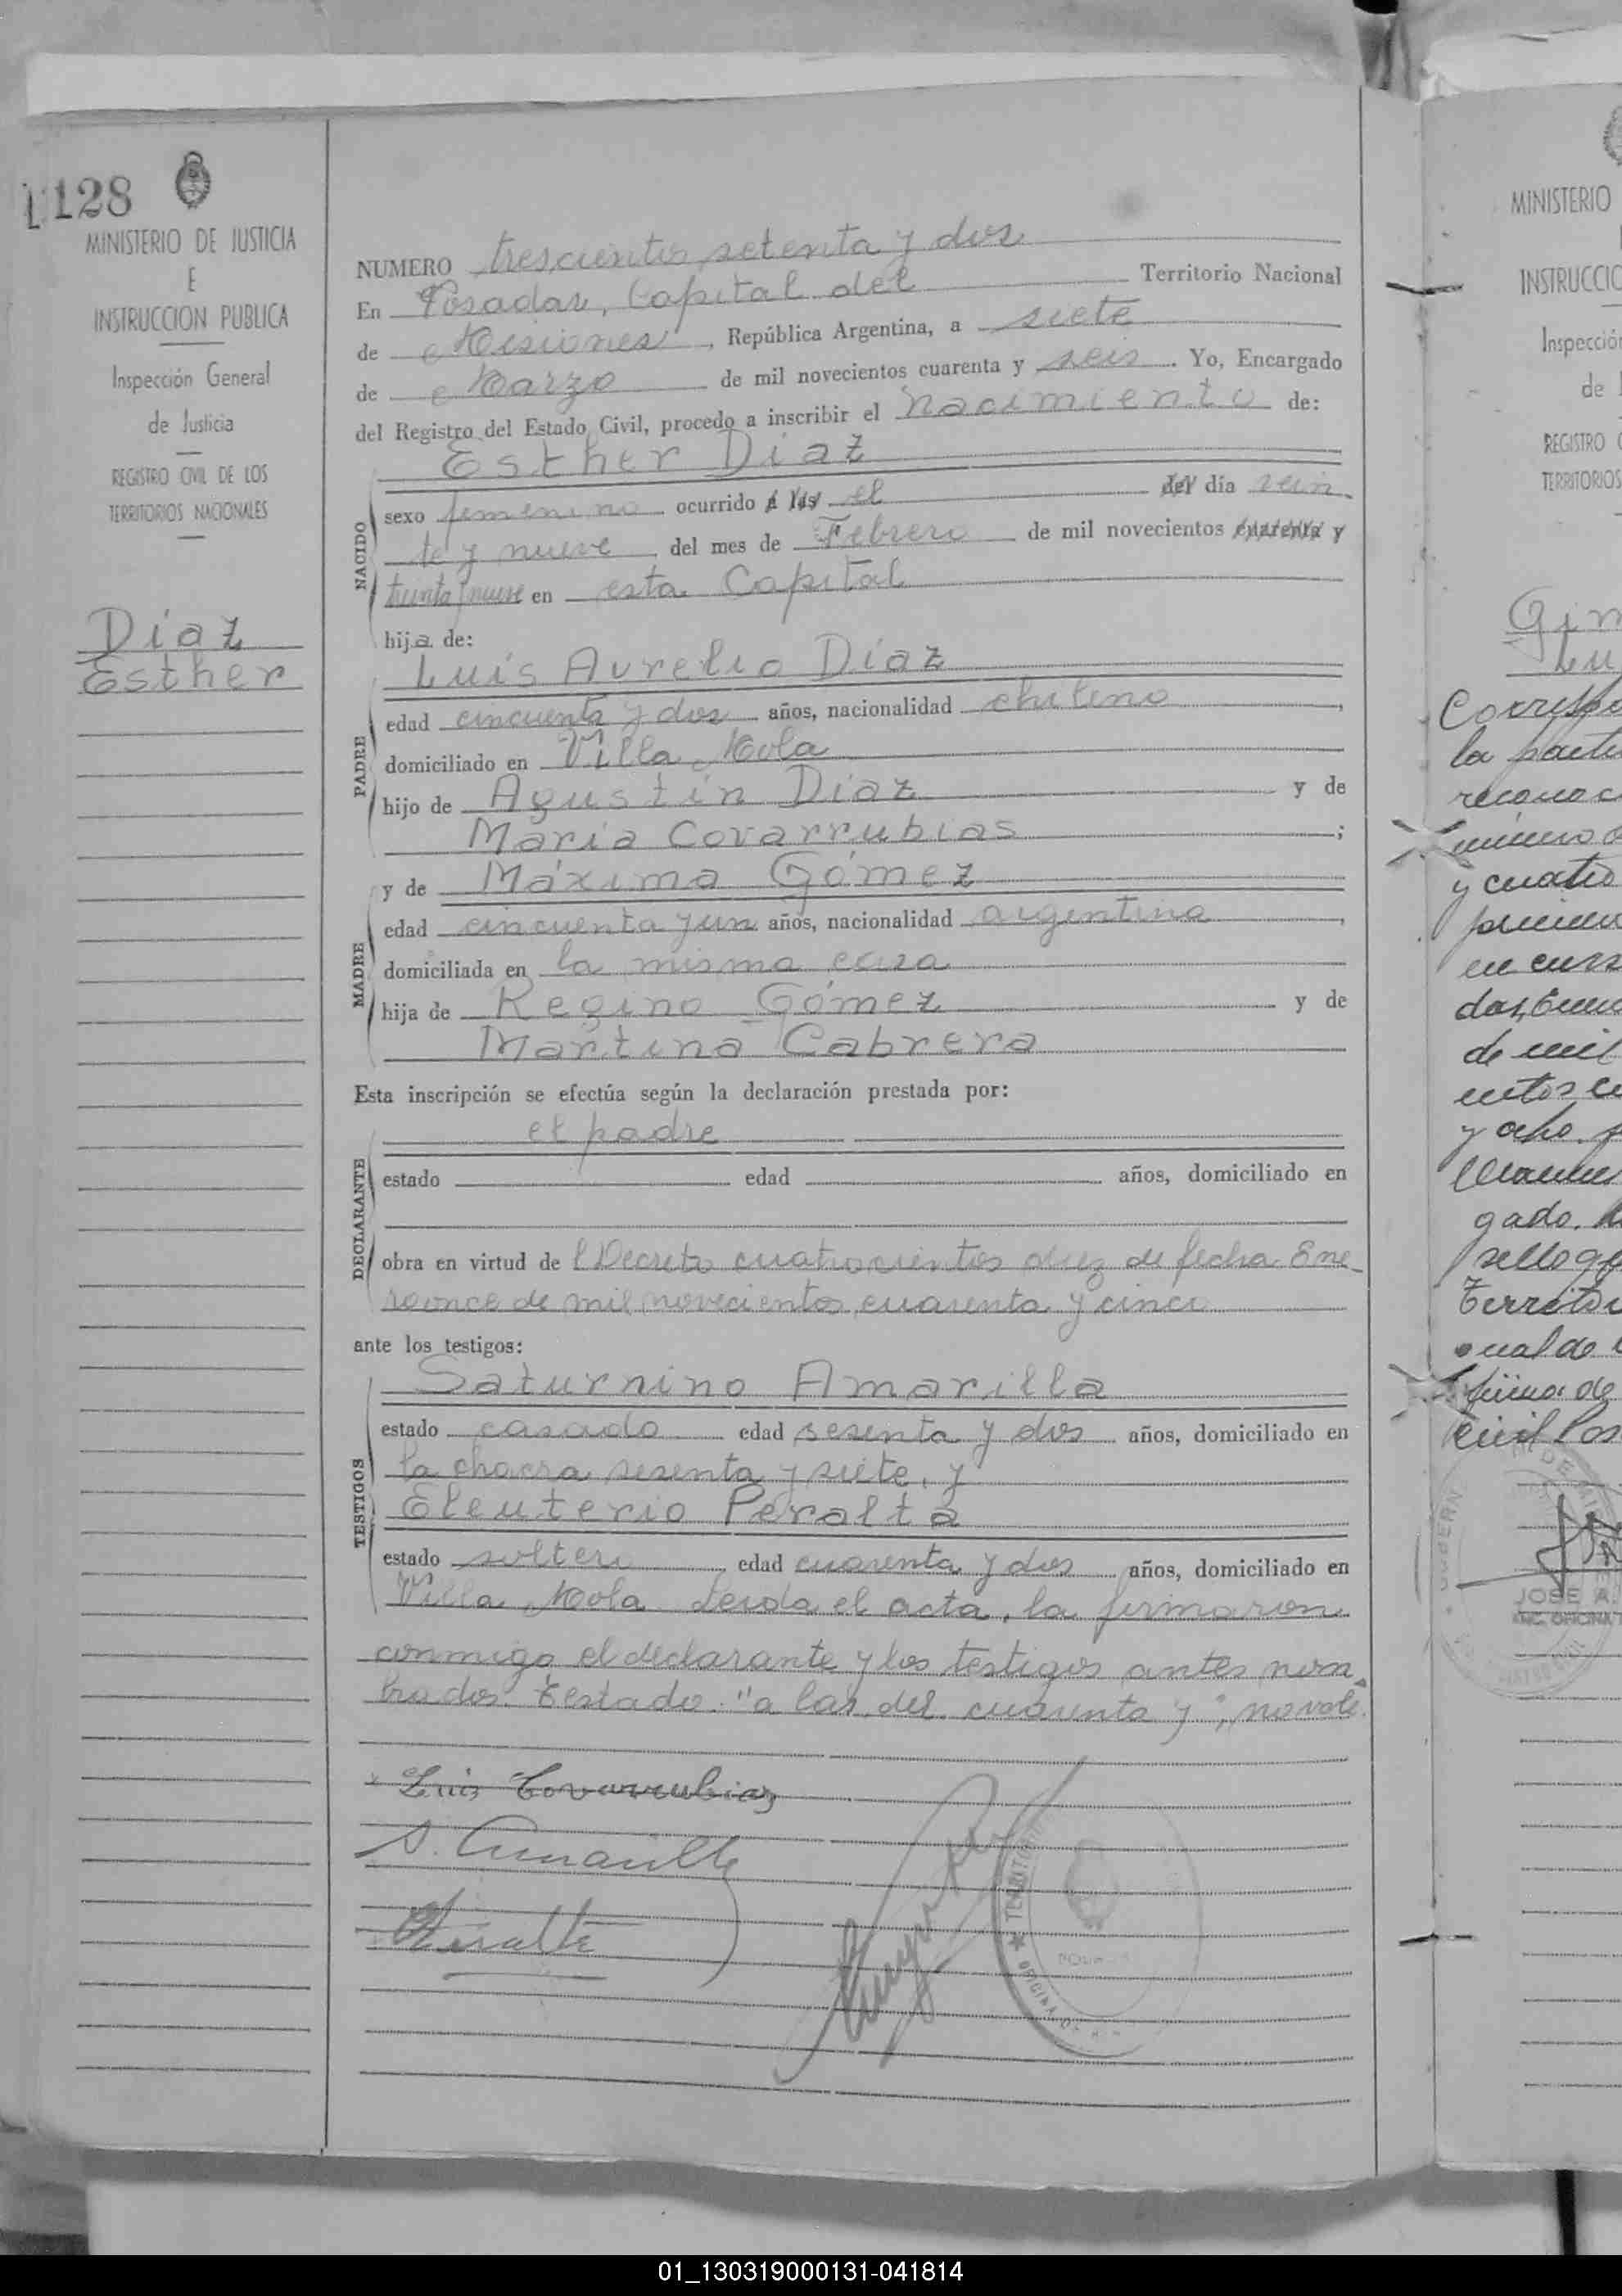 L128
MINISTERIO DE JUSTICIA
E
INSTRUCCION PUBLICA
Inspección General
de Justicia
REGISTRO CIVIL DE LOS
TERRITORIOS NACIONALES
Díaz
Esther
NUMERO trescientos setenta y dos
En Posadas, Capital del Territorio Nacional
de Misiones, República Argentina, a siete
de Marzo de mil novecientos cuarenta y seis. Yo, Encargado
del Registro del Estado Civil, procedo a inscribir el nacimiento de:
Esther Díaz
NACIDO
sexo femenino ocurrido a las el del día vein
te y nueve del mes de Febrero de mil novecientos cuarenta y
treinta nueve en esta Capital
hija de:
Luis Aurelio Díaz
PADRE
edad cincuenta y dos años, nacionalidad chileno,
domiciliado en Villa Mola
hijo de Agustín Díaz y de
María Covarrubias;
y de Máxima Gómez
MADRE
edad cincuenta y un años, nacionalidad argentina,
domiciliada en la misma casa
hija de Regino Gómez y de
Martina Cabrera
Esta inscripción se efectúa según la declaración prestada por:
el padre
DECLARANTE
estado edad años, domiciliado en
obra en virtud de l Decreto cuatrocientos diez de fecha Ene-
ro once de mil novecientos cuarenta y cinco
ante los testigos:
Saturnino Amarilla
TESTIGOS
estado casado edad sesenta y dos años, domiciliado en
la chacra sesenta y siete, y
Eleuterio Peralta
estado soltero edad cuarenta y dos años, domiciliado en
Villa Mola. Leida el acta, la firmaron
conmigo el declarante y los testigos antes nom
brados. Testado: "a las, del cuarenta y"; no vale.
Luis Covarrubias
S. Amarilla
Peralta
MINISTERIO
INSTRUCCIO
Inspección
de
REGISTRO
TERRITORIOS
la
y cuatro
en
de mil
y ocho
gado.
sello
Territo
nal de
Civil Pos
JOSE A.
ENC. OFICINA
01_130319000131-041814